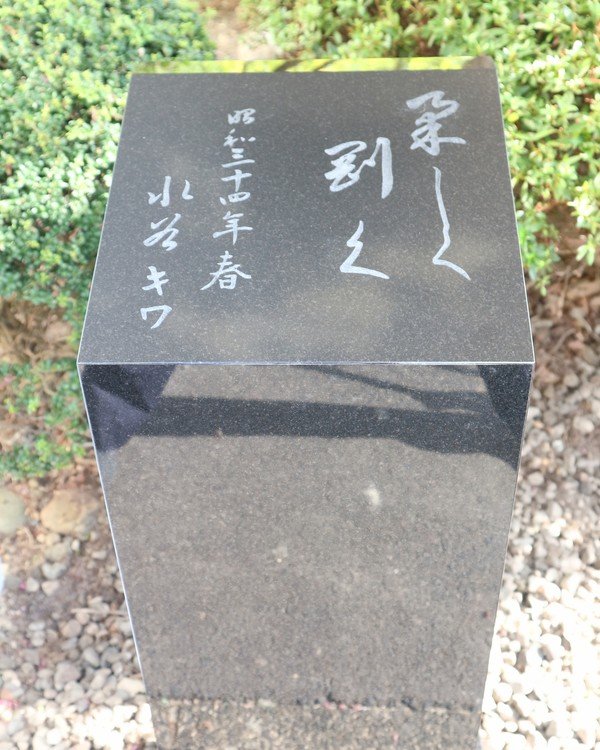 柔しく
剛く
昭和三十四年春
水谷キワ